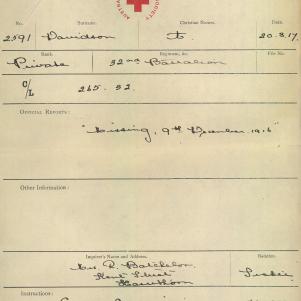 AUSTRA SOCIETY
No. Surname. Christian Names. Date.
2591 Davidson J. 20.8.17.
Rank. Regiment, &c. File No.
Private 32nd Battalion
C/L 265. 32.
OFFICIAL REPORTS:
"Missing, 9th December 1916"
Other Information:
Inquirer's Name and Address. Relation.
Mrs. R. Batchelor
Kent Street
Hawthorn
Instructions: